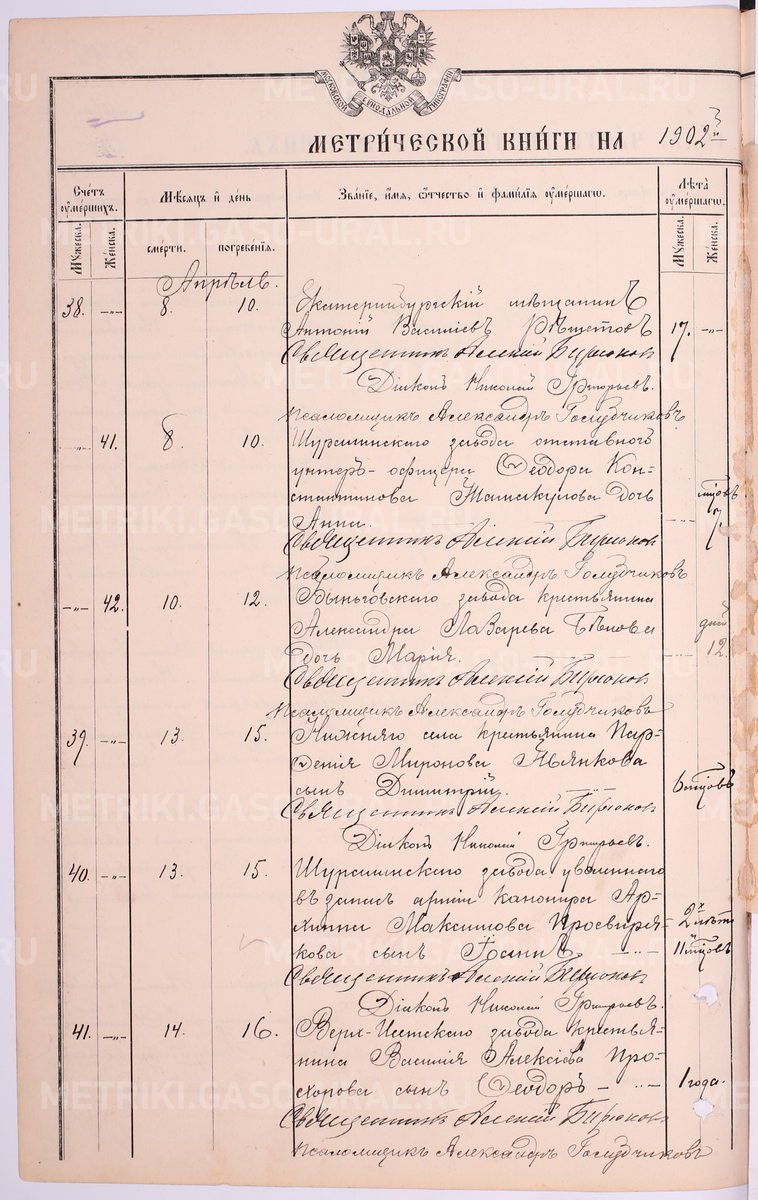 МОСКОВСКОЙ СѴНОДАЛЬНОЙ ТИПОГРАФІИ
МЕТРИ́ЧЕСКОЙ КНИ́ГИ НА 1902 й
Сче́тъ ᲂу҆ме́ршихъ.
Мѣ́сѧцъ и҆ де́нь
Зва́нїе, и҆́мѧ, ѻ҆́тчество и҆ фами́лїѧ ᲂу҆ме́ршагѡ.
Лѣ́та ᲂу҆ме́ршагѡ.
Мꙋ́жеска.
Же́нска.
сме́рти.
погребе́нїѧ.
Мꙋ́жеска.
Же́нска.
Апрѣль.
38. -„- 8. 10. Екатеринбургскій мѣщанинъ
Антоній Васильевъ Рѣшетовъ 17. -„-
Священникъ Алексій Бирюковъ
Діаконъ Николай Григорьевъ.
Псаломщикъ Александръ Голубчиковъ
-„- 41. 8. 10. Шуралинскаго завода отставного
унтеръ-офицера Ѳеодора Кон-
стантинова дочь мѣсцовъ
Анна. 7.
Священникъ Алексій Бирюковъ
Псаломщикъ Александръ Голубчиковъ
-„- 42. 10. 12. Выньговскаго завода крестьянина
Александра Лазарева Бѣлова дней
дочь Марія. 12.
Священникъ Алексій Бирюковъ
Псаломщикъ Александръ Голубчиковъ
39. -„- 13. 15. Нижняго села крестьянина Пар-
ѳенія Миронова Пьянкова
сынъ Димитрій. 6 мѣсцовъ
Священникъ Алексій Бирюковъ
Діаконъ Николай Григорьевъ.
40. -„- 13. 15. Шуралинскаго завода уволеннаго
въ запасъ арміи канонира Ар-
хиппа Максимова Просвиря- 2хъ лѣтъ
кова сынъ Іоаннъ -„- 11 мѣсцовъ
Священникъ Алексій Бирюковъ
Діаконъ Николай Григорьевъ.
41. -„- 14. 16. Верх-Исетскаго завода крестья-
нина Василія Алексіева Про-
хорова сынъ Ѳеодоръ -„- 1 года.
Священникъ Алексій Бирюковъ
Псаломщикъ Александръ Голубчиковъ
METRIKI.GASO-URAL.RU